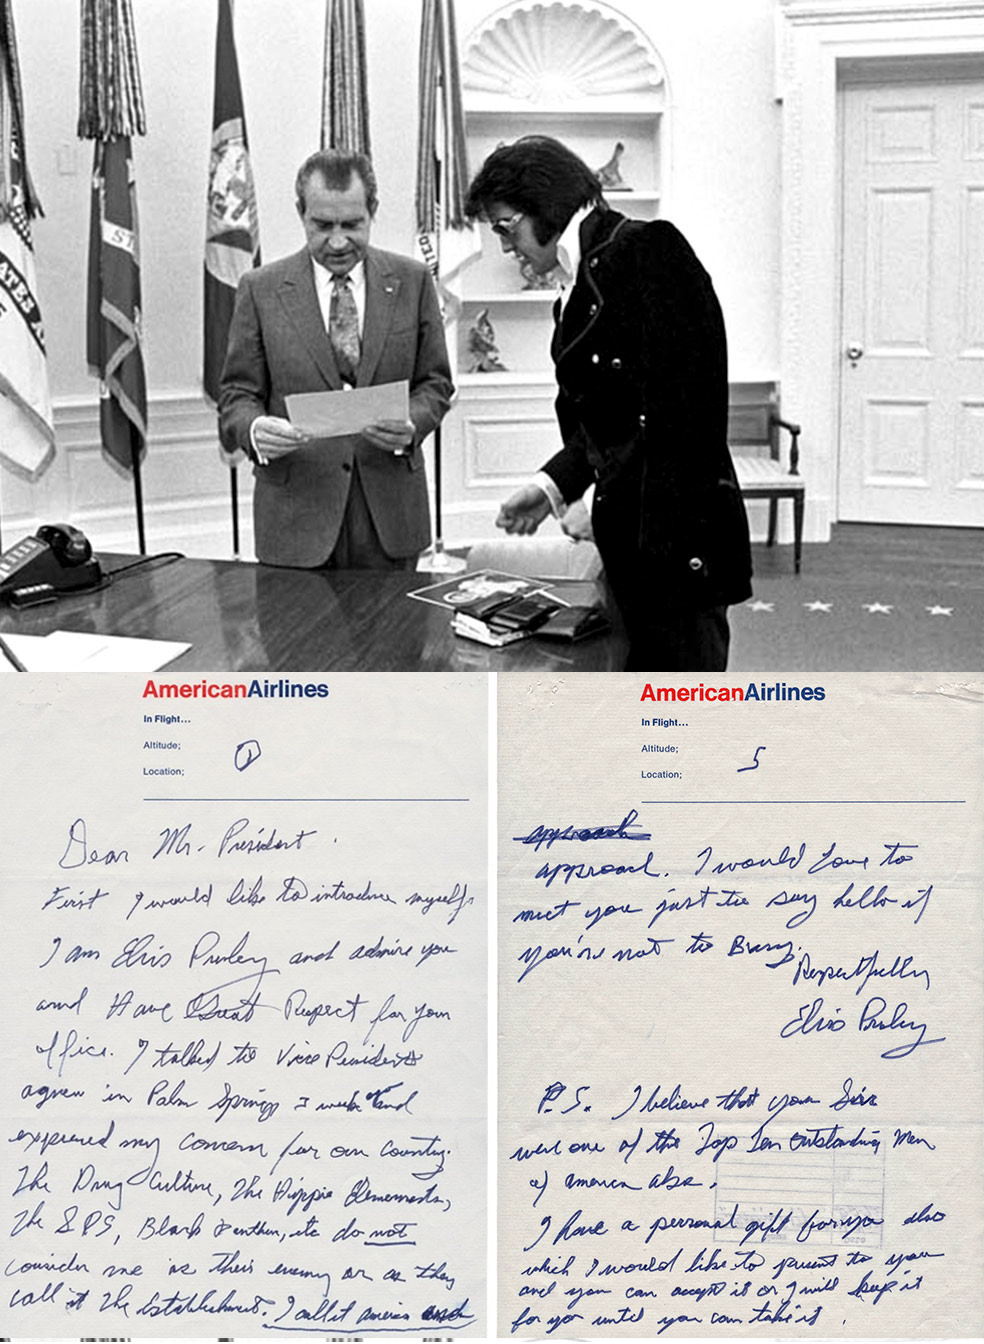 ST
UNITED
ATES
AmericanAirlines
In Flight...
Altitude;
Location;
1
Dear Mr. President.
First I would like to introduce myself.
I am Elvis Presley and admire you
and Have Great Respect for your
office. I talked to Vice President
agnew in Palm Springs 3 weeks and
expressed my concern for our country.
The Drug Culture, The Hippie Elements,
The SDS, Black Panthers, etc do not
consider me as their enemy or as they
call it The Establishment. I call it america and
AmericanAirlines
In Flight...
Altitude;
Location;
5
approach
approach. I would Love to
meet you just to say hello if
you're not to Busy.
Respectfully
Elvis Presley
P.S. I believe that you Sir
were one of the Top Ten Outstanding Men
of america also.
I have a personal gift for you also
which I would like to present to you
and you can accept it or I will keep it
for you until you can take it.